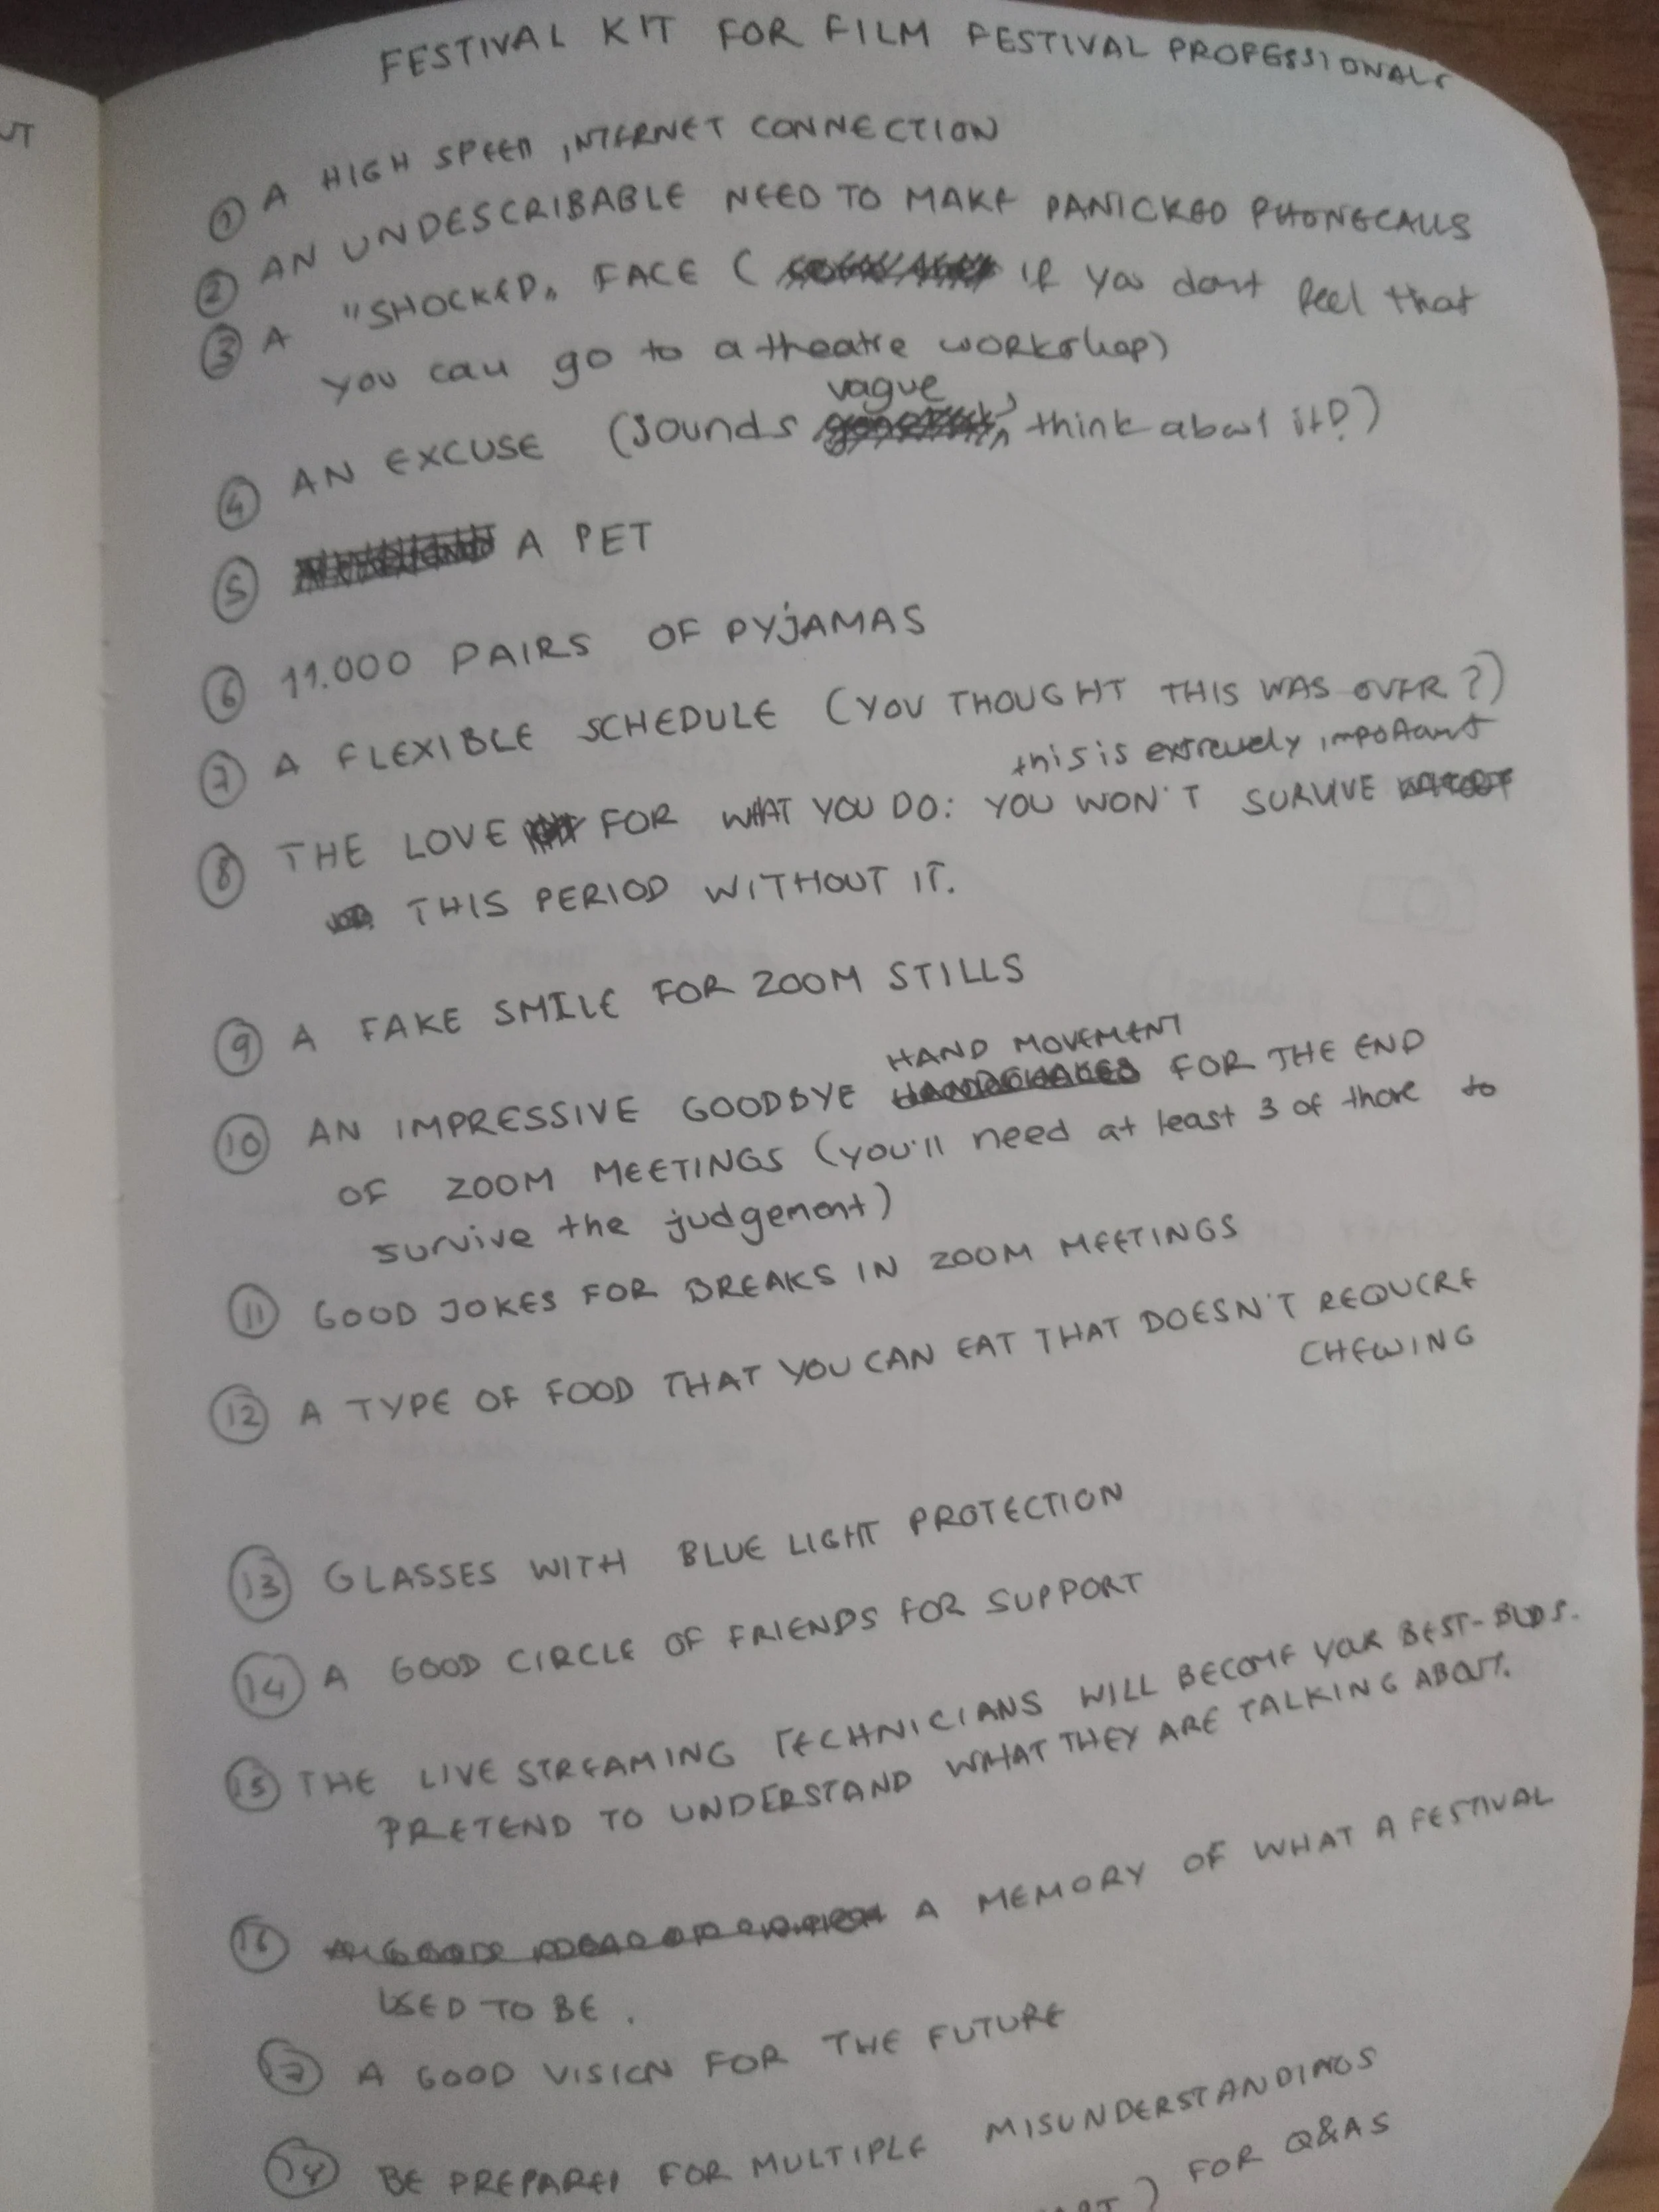 UT
FESTIVAL KIT FOR FILM FESTIVAL PROFESSIONALS
① A HIGH SPEED INTERNET CONNECTION
② AN UNDESCRIBABLE NEED TO MAKE PANICKED PHONECALLS
③ A "SHOCKED" FACE ( if you dont feel that
you can go to a theatre workshop)
vague
④ AN EXCUSE (sounds , think about it?)
⑤ A PET
⑥ 11.000 PAIRS OF PYJAMAS
⑦ A FLEXIBLE SCHEDULE (YOU THOUGHT THIS WAS OVER?)
this is extremely important
⑧ THE LOVE FOR WHAT YOU DO: YOU WON'T SURVIVE
THIS PERIOD WITHOUT IT.
⑨ A FAKE SMILE FOR ZOOM STILLS
HAND MOVEMENT
⑩ AN IMPRESSIVE GOODBYE HANDSHAKES FOR THE END
OF ZOOM MEETINGS (you'll need at least 3 of those to
survive the judgement)
⑪ GOOD JOKES FOR BREAKS IN ZOOM MEETINGS
⑫ A TYPE OF FOOD THAT YOU CAN EAT THAT DOESN'T REQUIRE
CHEWING
⑬ GLASSES WITH BLUE LIGHT PROTECTION
⑭ A GOOD CIRCLE OF FRIENDS FOR SUPPORT
⑮ THE LIVE STREAMING TECHNICIANS WILL BECOME YOUR BEST-BUDS.
PRETEND TO UNDERSTAND WHAT THEY ARE TALKING ABOUT.
⑯ A MEMORY OF WHAT A FESTIVAL
USED TO BE.
⑰ A GOOD VISION FOR THE FUTURE
⑱ BE PREPARED FOR MULTIPLE MISUNDERSTANDINGS
) FOR Q&AS